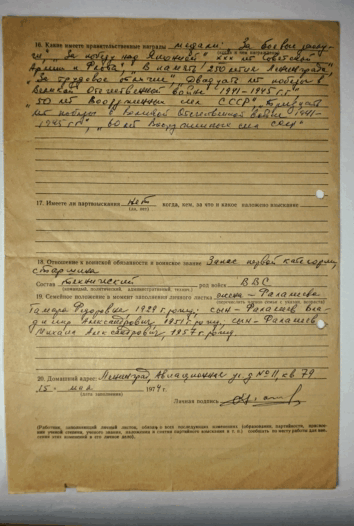 16. Какие имеете правительственные награды медали: „За боевые заслу-
ги“, „За победу над Японией“ XXX лет Советской
Армии и Флота“, „В память 250 летия Ленинграда“,
„За трудовое отличие“, „Двадцать лет победы в
Великой Отечественной войне 1941-1945 гг“
„50 лет Вооруженных сил СССР“, „Тридцать
лет победы в Великой Отечественной войне 1941-
1945 гг“, „60 лет Вооруженных сил СССР“
17. Имеете ли партвзыскания нет когда, кем, за что и какое наложено взыскание
(да, нет)
18. Отношение к воинской обязанности и воинское звание Запас первой категории,
старшина
Состав технический род войск ВВС
(командный, политический, административный, технич.)
19. Семейное положение в момент заполнения личного листка жена -
Тамара 1929 г. рожд. сын -
Александрович, 1951 г. рожд., сын -
Михаил Александрович, 1957 г. рожд.
20. Домашний адрес: Ленинград, Авиационная ул. д № 11, кв 79
15 мая 197 г.
(дата заполнения)
Личная подпись
(Работник, заполняющий личный листок, обязан о всех последующих изменениях (образовании, партийности, присвое-
нии ученой степени, ученого звания, наложении и снятии партийного взыскания и т. п.) сообщать по месту работы для вне-
сения этих изменений в его личное дело).